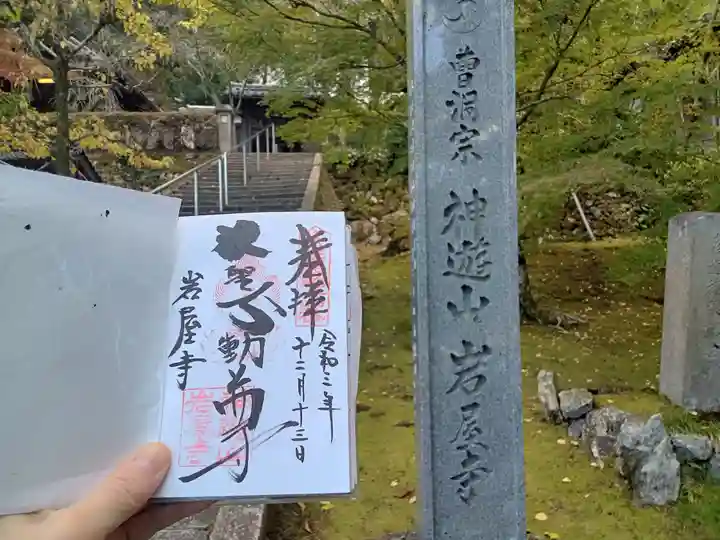 奉拝
令和三年
十二月十三日
大聖不動尊
岩屋寺
曹洞宗 神遊山 岩屋寺